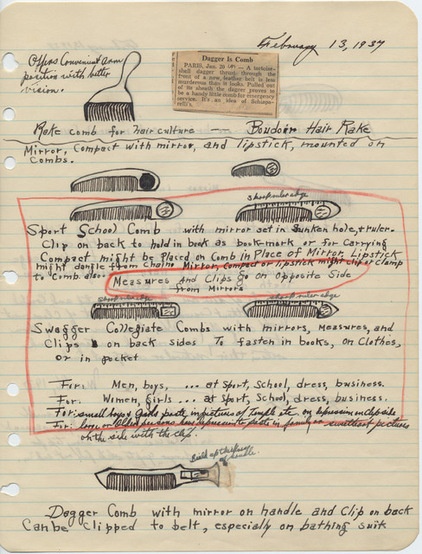 February 13, 1937
Offers Convenient arm
position with better
vision.
Dagger Is Comb
PARIS, Jan. 20 (AP) — A tortoise-
shell dagger thrust through the
front of a new, leather belt is less
murderous than it looks. Pulled out
of its sheath the dagger proves to
be a handy little comb for emergency
service. It's an idea of Schiapa-
relli's.
Rake comb for hair culture — Boudoir Hair Rake
Mirror, Compact with mirror, and lipstick, mounted on
Combs.
sharp ruler edge
Sport School Comb with mirror set in Sunken hole, & ruler.
Clip on back to hold in book as book-mark or for Carrying
Compact might be Placed on Comb in Place of Mirror, Lipstick
might dangle from Chain. Mirror, compact or lipstick might clip or clamp
to Comb also.
Measures and Clips Go on Opposite Side
from Mirrors
sharp ruler edge
sharp ruler edge
Swagger Collegiate Combs with mirrors, measures, and
Clips on back sides To fasten in books, on Clothes,
or in pocket
For: Men, boys, ... at Sport, School, dress, business.
For: Women, Girls ... at Sport, School, dress, business.
For: small boys & girls paste in pictures of Temple etc on clip side
For: or paste in family or sweetheart pictures
on the side with the clip.
Build up the
of handle.
Dagger Comb with mirror on handle and Clip on back
Can be Clipped to belt, especially on bathing suit